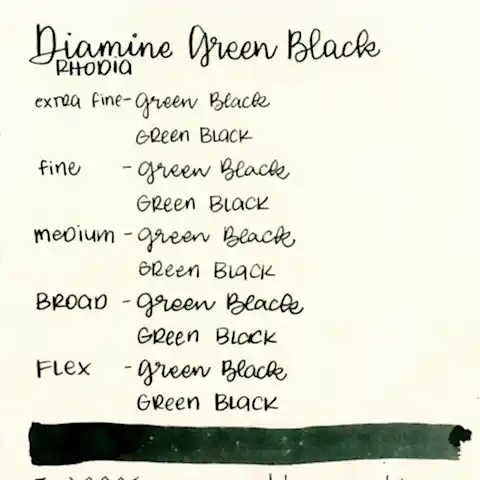 Diamine Green Black
RHODIA
extra fine - Green Black
GReen BLACK
fine - Green Black
GReen BLACK
meDium - Green Black
GReen BLACK
BROAD - Green Black
GReen BLACK
FLex - Green Black
GReen BLACK